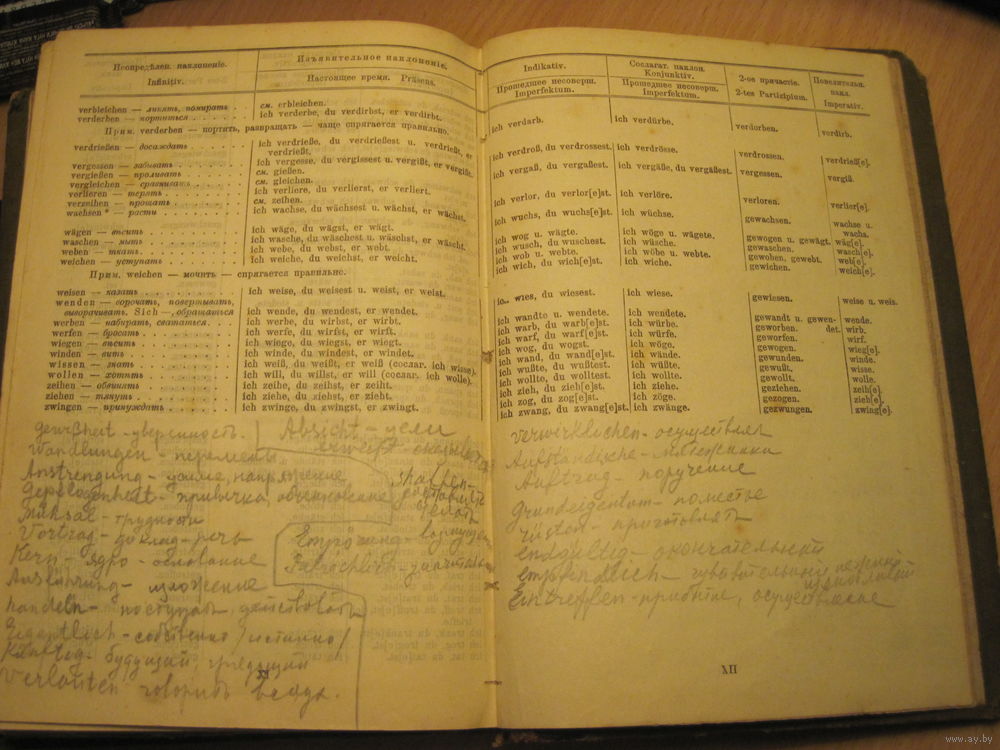 Неопредѣлен. наклоненіе.
Infinitiv.
Изъявительное наклоненіе.
Настоящее время. Präsens.
verbleichen — линять, помирать . см. erbleichen.
verderben — портиться . . . . . ich verderbe, du verdirbst, er verdirbt.
Прим. verderben — портить, развращать — чаще спрягается правильно.
verdrießen — досаждать . . . . ich verdrieße, du verdrießest u. verdrießt, er
verdrießt.
vergessen — забывать . . . . . ich vergesse, du vergissest u. vergißt, er vergißt.
vergießen — проливать . . . . . см. gießen.
vergleichen — сравнивать . . . . см. gleichen.
verlieren — терять . . . . . . ich verliere, du verlierst, er verliert.
verzeihen — прощать . . . . . см. zeihen.
wachsen * — расти . . . . . . ich wachse, du wächsest u. wächst, er wächst.
wägen — вѣсить . . . . . . . ich wäge, du wägst, er wägt.
waschen — мыть . . . . . . . ich wasche, du wäschest u. wäschst, er wäscht.
weben — ткать . . . . . . . ich webe, du webst, er webt.
weichen — уступать . . . . . . ich weiche, du weichst, er weicht.
Прим. weichen — мочить — спрягается правильно.
weisen — казать . . . . . . . ich weise, du weisest u. weist, er weist.
wenden — ворочать, повертывать,
выворачивать. Sich — обращаться ich wende, du wendest, er wendet.
werben — набирать, свататься. . . ich werbe, du wirbst, er wirbt.
werfen — бросать . . . . . . . ich werfe, du wirfst, er wirft.
wiegen — вѣсить . . . . . . . ich wiege, du wiegst, er wiegt.
winden — вить . . . . . . . ich winde, du windest, er windet.
wissen — знать . . . . . . . ich weiß, du weißt, er weiß (сослаг. ich wisse).
wollen — хотѣть . . . . . . . ich will, du willst, er will (сослаг. ich wolle).
zeihen — обвинять . . . . . . ich zeihe, du zeihst, er zeiht.
ziehen — тянуть . . . . . . . ich ziehe, du ziehst, er zieht.
zwingen — принуждать . . . . . ich zwinge, du zwingst, er zwingt.
Absicht - цели
Wandlungen - перемены
Mühsal - трудности
Vortrag - доклад - речь
Kern - ядро - основание
Ausführung - изложение
handeln - поступать, действовать
Eigentlich - собственно /истинно/
Künftig - будущий, грядущий
XI
Indikativ.
Прошедшее несоверш.
Imperfektum.
Сослагат. наклон.
Konjunktiv.
Прошедшее несоверш.
Imperfektum.
2-ое причастіе.
2-tes Partizipium.
Повелительн.
накл.
Imperativ.
ich verdarb. ich verdürbe. verdorben. verdirb.
ich verdroß, du verdrossest. ich verdrösse. verdrossen. verdrieß[e].
ich vergaß, du vergaßest. ich vergäße, du vergäßest. vergessen. vergiß.
ich verlor, du verlor[e]st. ich verlöre. verloren. verlier[e].
ich wuchs, du wuchs[e]st. ich wüchse. gewachsen. wachse u.
wachs.
ich wog u. wägte. ich wöge u. wägete. gewogen u. gewägt. wäg[e].
ich wusch, du wuschest. ich wüsche. gewaschen. wasch[e].
ich wob u. webte. ich wöbe u. webte. gewoben, gewebt. web[e].
ich wich, du wich[e]st. ich wiche. gewichen. weich[e].
wies, du wiesest. ich wiese. gewiesen. weise u. weis.
ich wandte u. wendete. ich wendete. gewandt u. gewen- wende.
ich warb, du warb[e]st. ich würbe. geworben. det. wirb.
ich warf, du warf[e]st. ich würfe. geworfen. wirf.
ich wog, du wogst. ich wöge. gewogen. wieg[e].
ich wand, du wand[e]st. ich wände. gewunden. winde.
ich wußte, du wußtest. ich wüßte. gewußt. wisse.
ich wollte, du wolltest. ich wollte. gewollt. wolle.
ich zieh, du zieh[e]st. ich ziehe. geziehen. zeih[e].
ich zog, du zog[e]st. ich zöge. gezogen. zieh[e].
ich zwang, du zwang[e]st. ich zwänge. gezwungen. zwing[e].
verwirklichen - осуществлять
Aufständische - мятежники
Auftrag - поручение
Grundeigentum - поместье
rüsten - приготовлять
endgültig - окончательный
empfindlich - чувствительный
Eintreffen - прибытие, осуществление
XII
www.ay.by